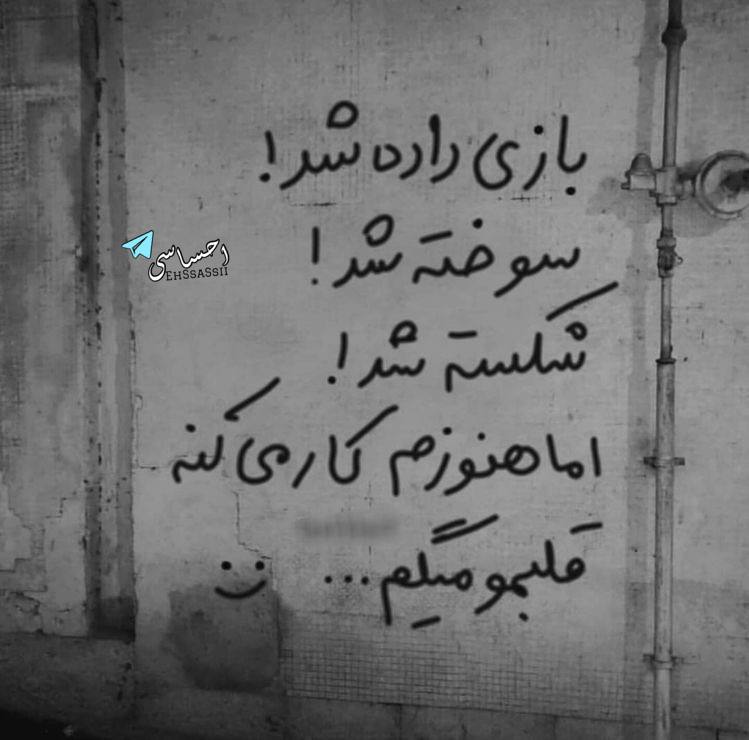 بازی داده شد!
سوخته شد!
احساسی
EHSSASSII
شکسته شد!
اما هنوزم کار می کنه
قلبمو میگم... :)